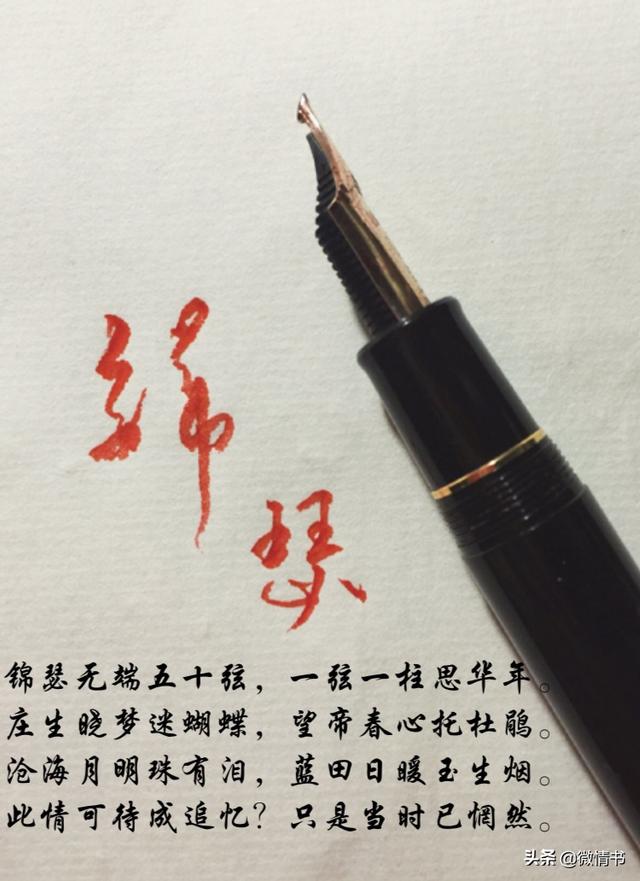 锦瑟
锦瑟无端五十弦，一弦一柱思华年。
庄生晓梦迷蝴蝶，望帝春心托杜鹃。
沧海月明珠有泪，蓝田日暖玉生烟。
此情可待成追忆？只是当时已惘然。
头条@微情书